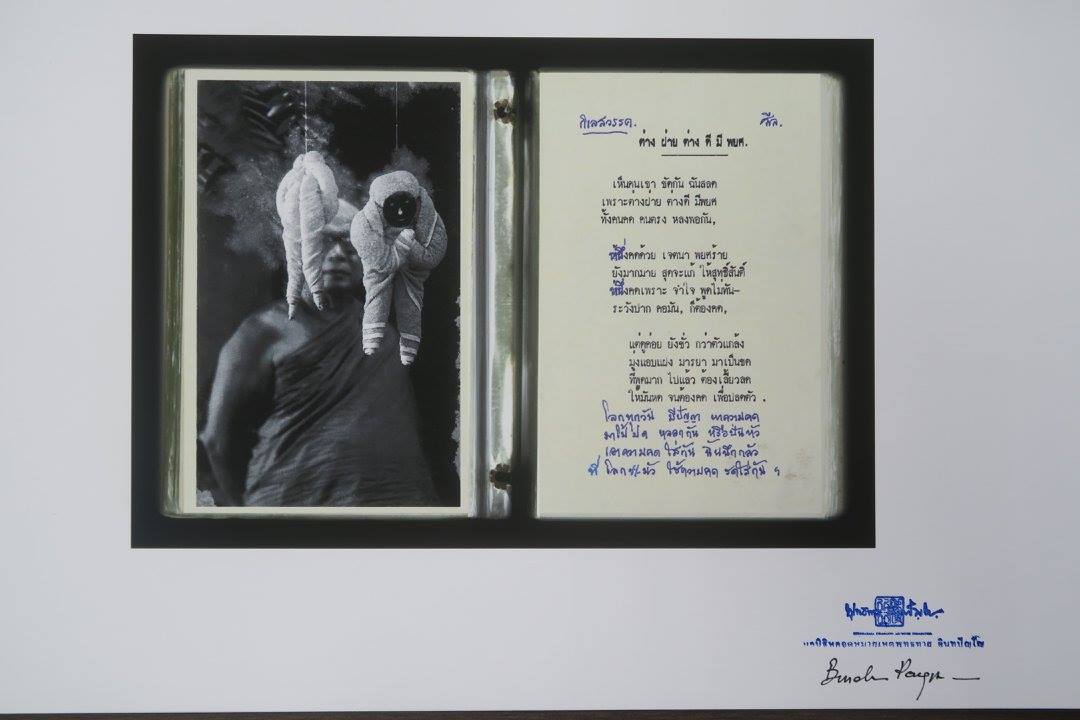 กิเลสวรรค. ศีล.
ต่าง ฝ่าย ต่าง ดี มี พยศ.
เห็นคนเขา ขัดกัน ฉันสลด
เพราะต่างฝ่าย ต่างดี มีพยศ
ทั้งคนคด คนตรง หลงพอกัน,
หนึ่งคดด้วย เจตนา พยศร้าย
ยังมากมาย สุดจะแก้ ให้สุทธิ์สันติ์
หนึ่งคดเพราะ จำใจ พูดไม่ทัน-
ระวังปาก คอมัน, ก็ต้องคด,
แต่ดูค่อย ยังชั่ว กว่าตัวแกล้ง
มุ่งแอบแฝง มารยา มาเป็นชด
ที่พูดมาก ไปแล้ว ต้องเลี้ยวลด
ให้มันหด จนต้องคด เพื่อปลดตัว .
โลกทุกวัน มีปัญญา หาความคด
มาใช้ปด หลอกกัน หรือปั่นหัว
เอาความคด ใส่กัน ฉันนึกกลัว
ที่ โลกจะมัว ใช้ความคด ชดใส่กัน ฯ